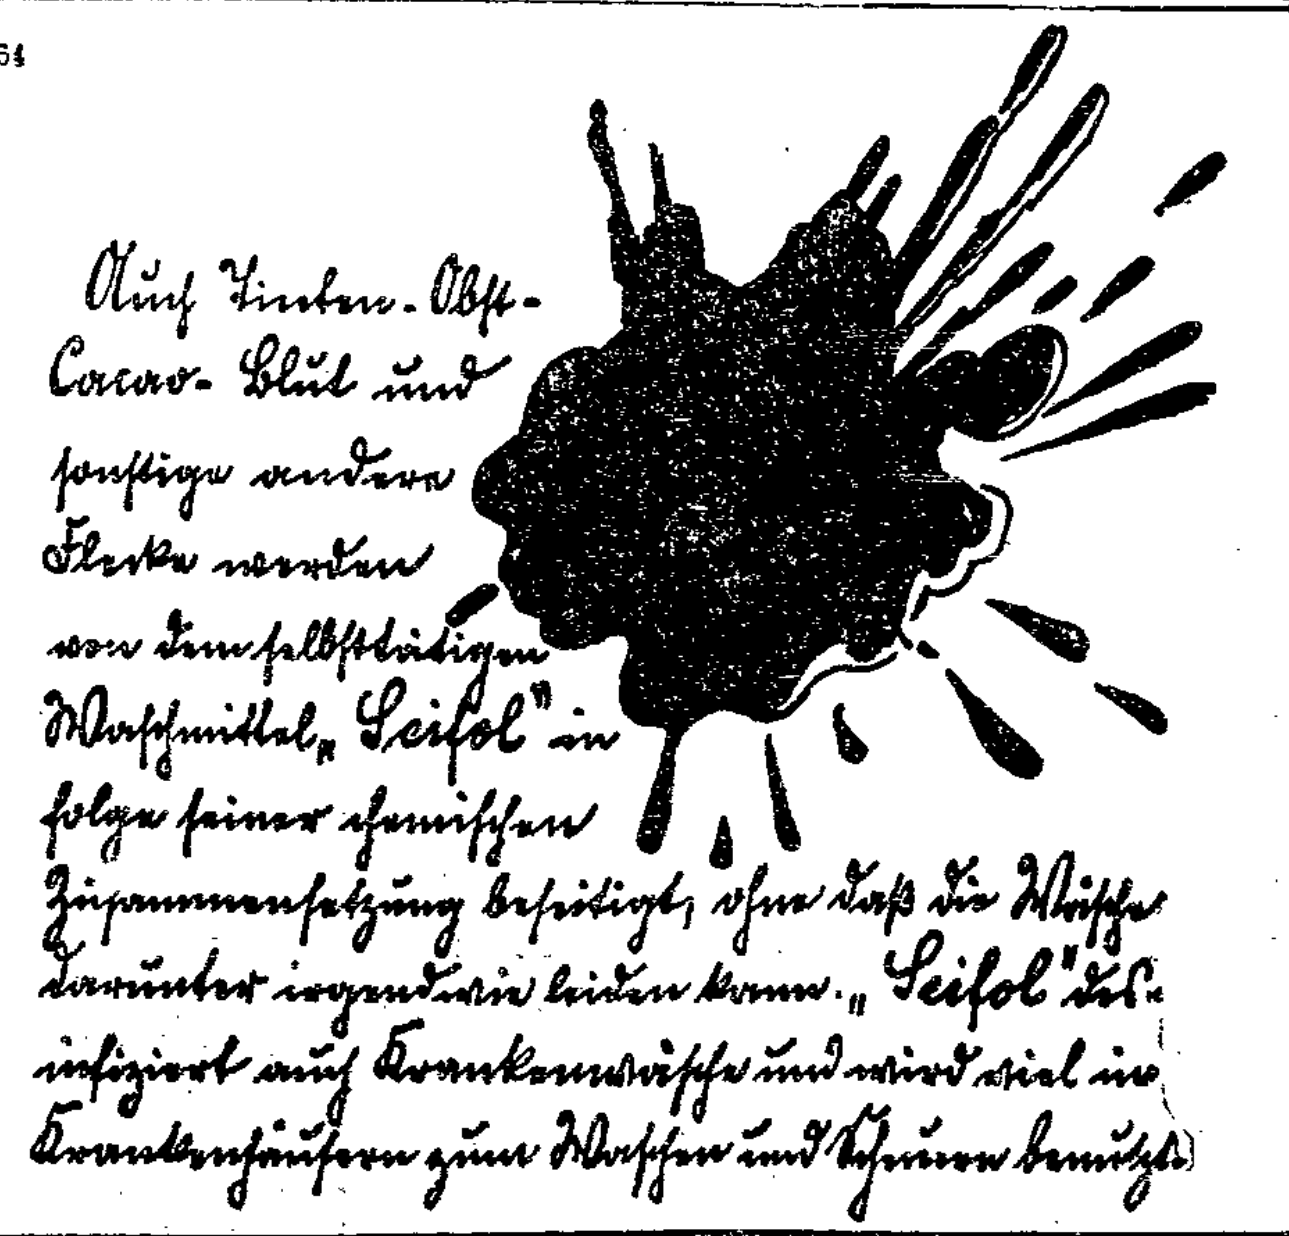 64
Auch Tinten-Obst-
Cacao-Blut und
sonstige andere
Flecke werden
von dem selbsttätigen
Waschmittel „Seifol" in
folge seiner chemischen
Zusammensetzung beseitigt, ohne daß die Wäsche
darunter irgendwie leiden kann. „Seifol" des-
infiziert auch Krankenwäsche und wird viel in
Krankenhäusern zum Waschen und Scheuern benutzt.